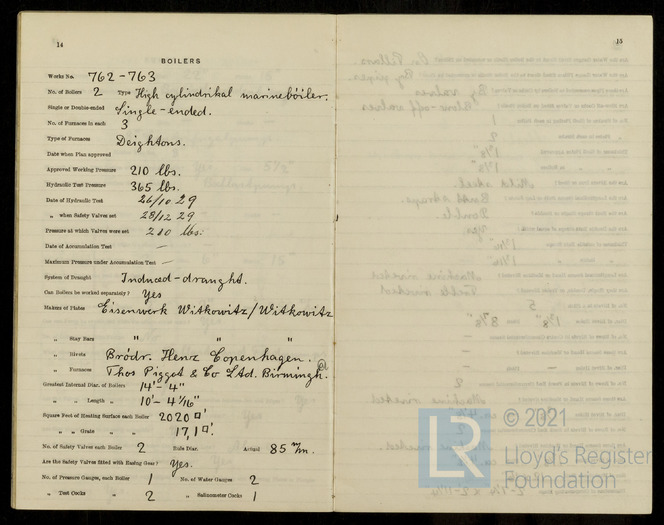 14
BOILERS
Works No. 762-763
No. of Boilers 2 Type High cylindrikal marineböiler.
Single or Double-ended Single-ended.
No. of Furnaces in each 3
Type of Furnaces Deightons.
Date when Plan approved
Approved Working Pressure 210 lbs.
Hydraulic Test Pressure 365 lbs.
Date of Hydraulic Test 26/10 29
„ when Safety Valves set 28/12 29
Pressure at which Valves were set 210 lbs:
Date of Accumulation Test —
Maximum Pressure under Accumulation Test —
System of Draught Induced-draught.
Can Boilers be worked separately? Yes
Makers of Plates Eisenwerk Witkowitz/Witkowitz
„ Stay Bars " " "
„ Rivets Brödr. Henz Copenhagen.
„ Furnaces Thos Piggot & Co Ltd. Birmingh.
Greatest Internal Diar. of Boilers 14'-4"
„ „ Length „ 10'-4 1/16"
Square Feet of Heating Surface each Boiler 2020 □'
„ „ Grate „ „ 17,1 □'.
No. of Safety Valves each Boiler 2 Rule Diar. Actual 85 m/m.
Are the Safety Valves fitted with Easing Gear? Yes.
No. of Pressure Gauges, each Boiler 1 No. of Water Gauges 2
„ Test Cocks „ 2 „ Salinometer Cocks 1
15
© 2021
LR
Lloyd's Register
Foundation